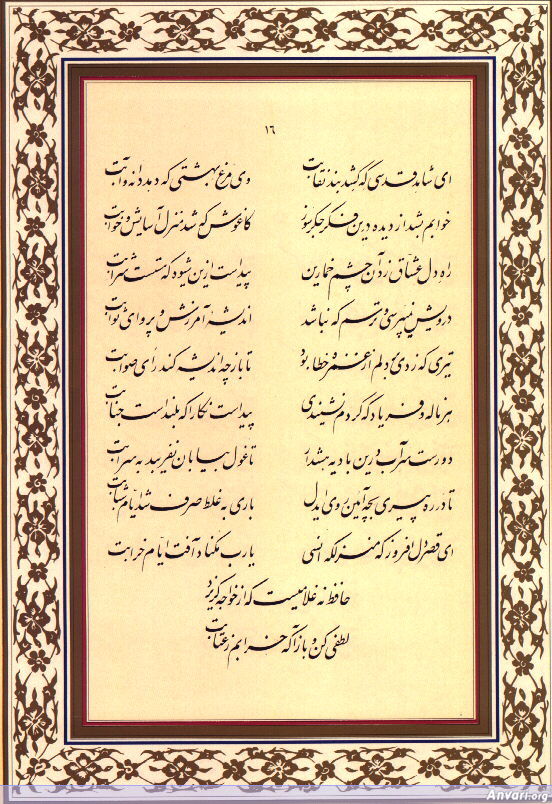 ١٦
ای شاهد قدسی که کشد بند نقابت وی مرغ بهشتی که دهد دانه و آبت
خوابم بشد از دیده درین فکر جگرسوز کاغوش که شد منزل آسایش و خوابت
راه دل عشاق زد آن چشم خمارین پیداست ازین شیوه که مستست شرابت
درویش نمیپرسی و ترسم که نباشد اندیشه آمرزش و پروای ثوابت
تیری که زدی بر دلم از غمزه خطا بود تا باز چه اندیشه کند رای صوابت
هر ناله و فریاد که کردم نشنیدی پیداست نگارا که بلندست جنابت
دورست سر آب درین بادیه هشدار تا غول بیابان نفریبد به سرابت
تا در ره پیری بچه آیین روی ایدل باری به غلط صرف شد ایام شبابت
ای قصر دلفروز که منزلگه انسی یارب مکناد آفت ایام خرابت
حافظ نه غلامیست که از خواجه گریزد
لطفی کن و بازآ که خرابم ز عتابت
Anvari.org